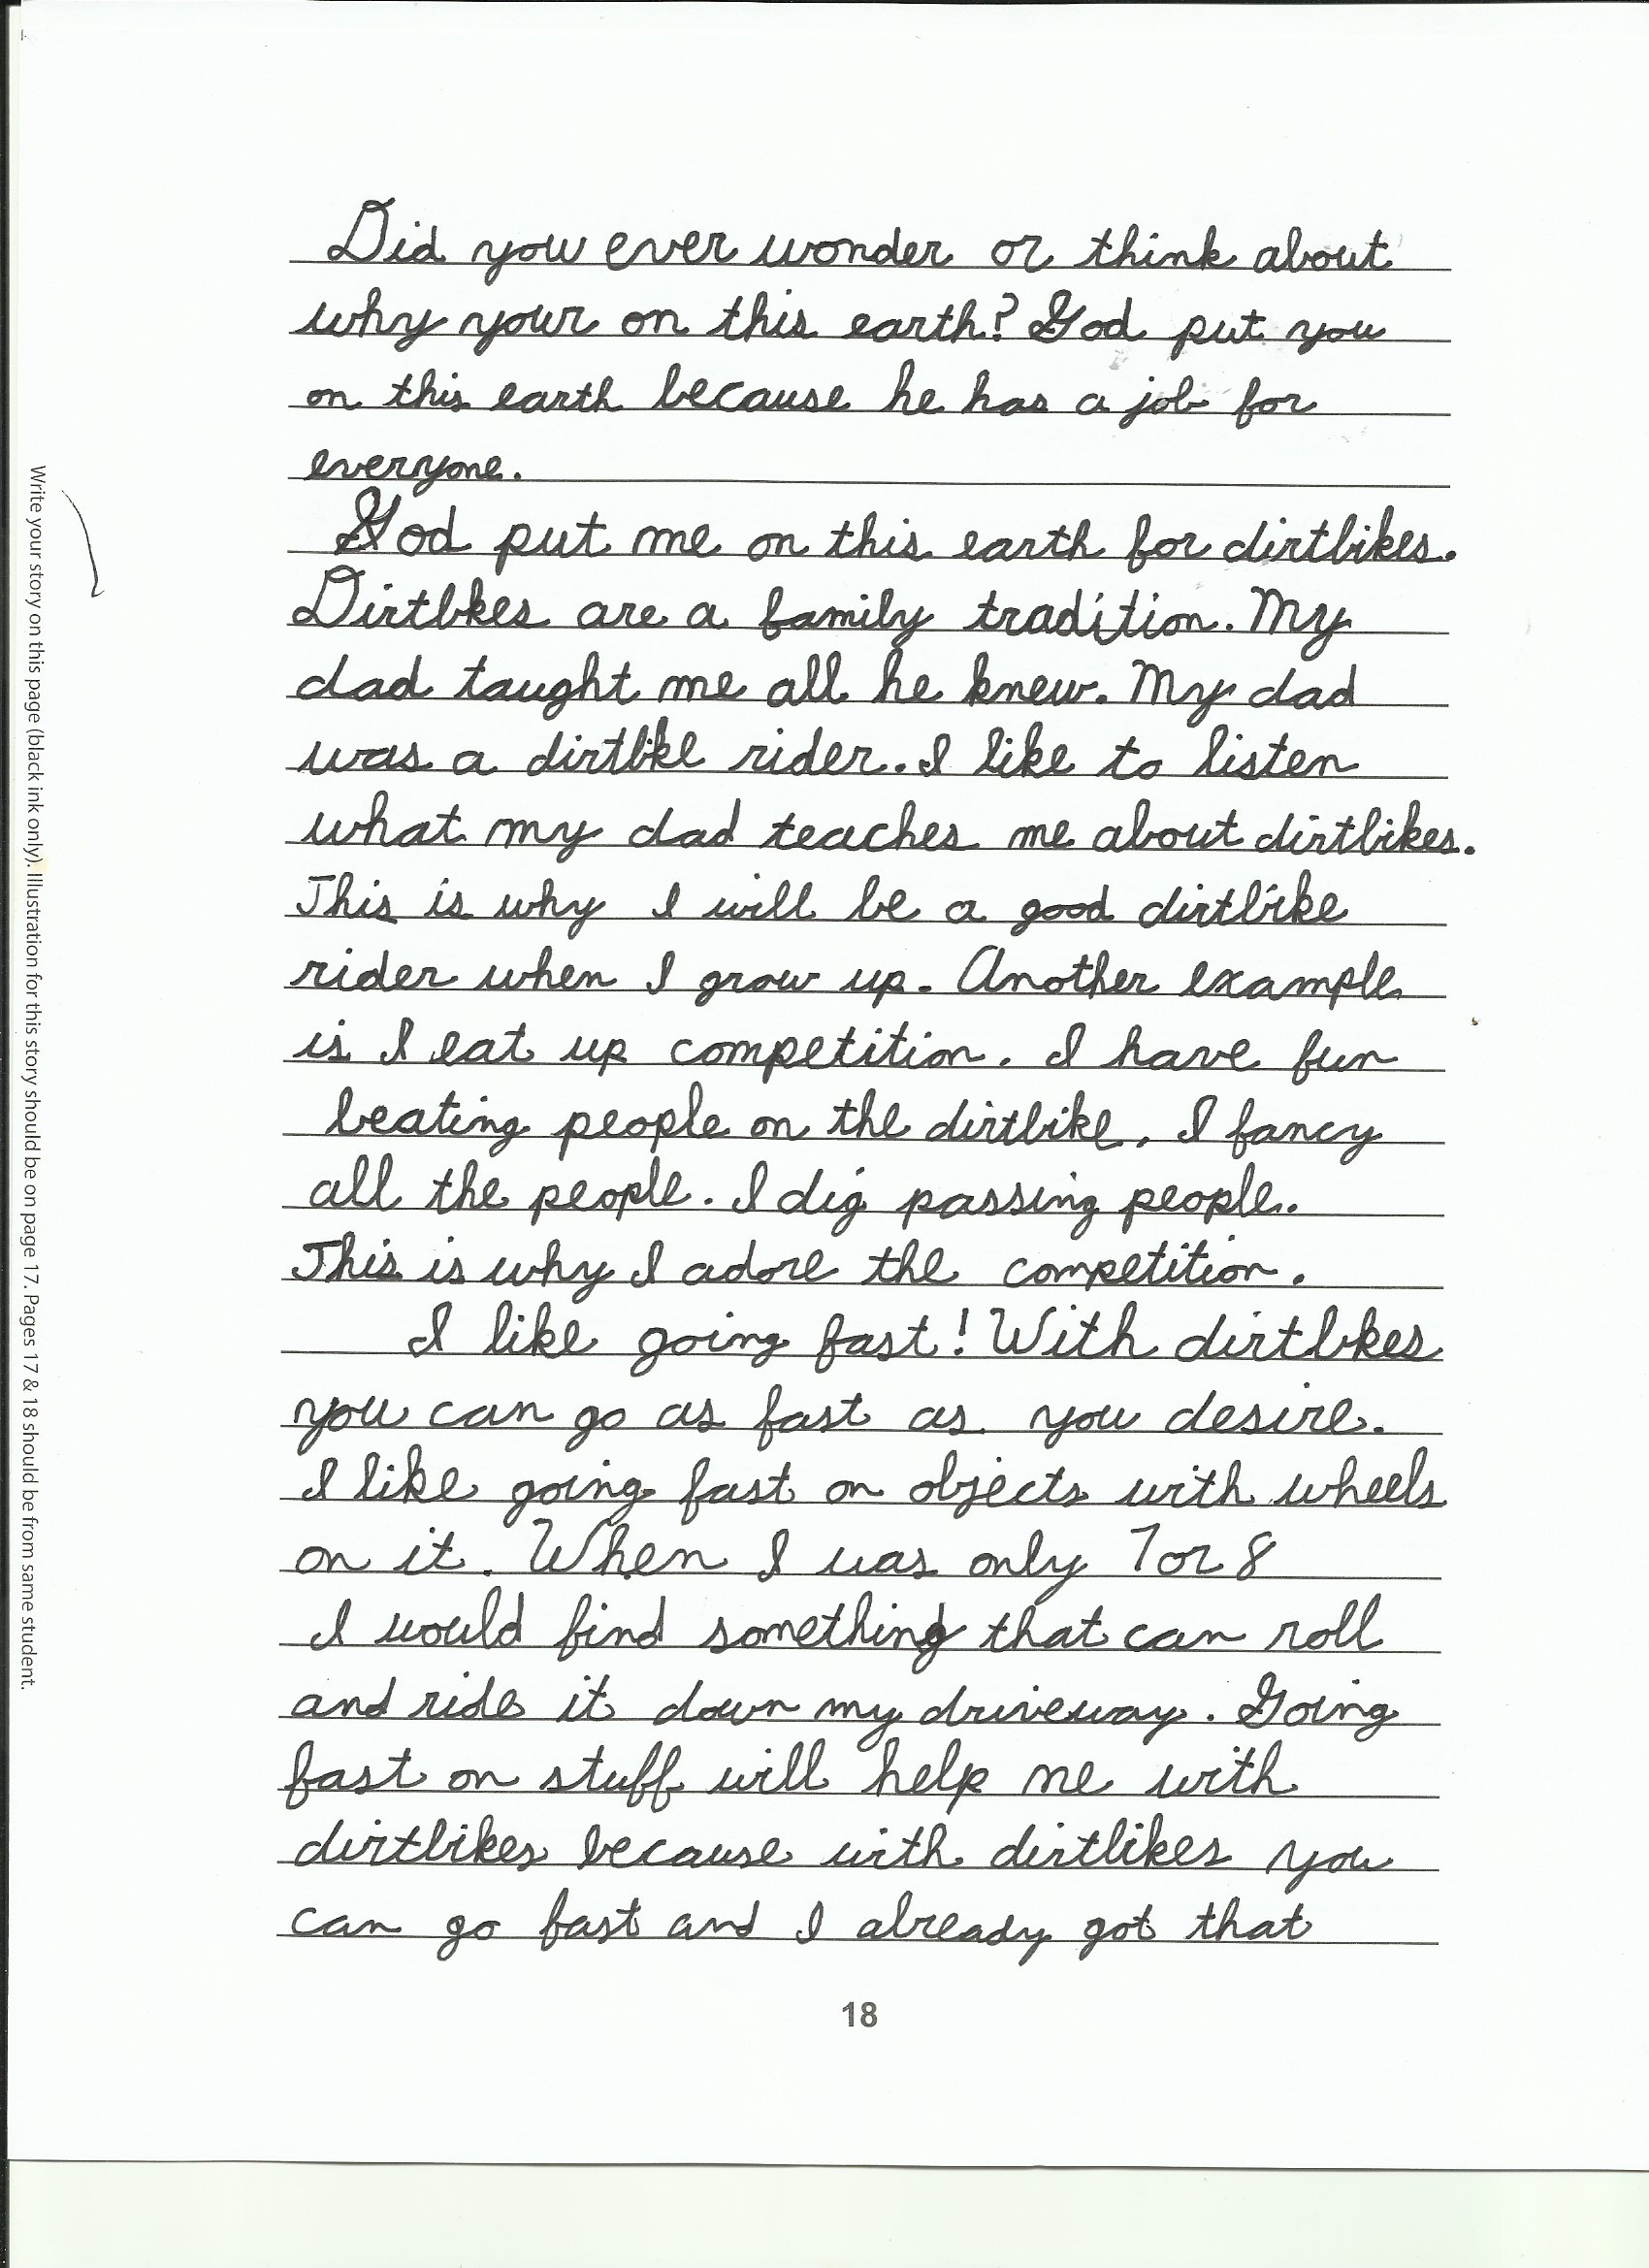 Did you ever wonder or think about
why your on this earth? God put you
on this earth because he has a job for
everyone.
God put me on this earth for dirtbikes.
Dirtbkes are a family tradition. My
dad taught me all he knew. My dad
was a dirtbike rider. I like to listen
what my dad teaches me about dirtbikes.
This is why I will be a good dirtbike
rider when I grow up. Another example
is I eat up competition. I have fun
beating people on the dirtbike. I fancy
all the people. I dig passing people.
This is why I adore the competition.
I like going fast! With dirtbkes
you can go as fast as you desire.
I like going fast on objects with wheels
on it. When I was only 7 or 8
I would find something that can roll
and ride it down my driveway. Going
fast on stuff will help me with
dirtbikes because with dirtbikes you
can go fast and I already got that
18
Write your story on this page (black ink only). Illustration for this story should be on page 17. Pages 17 & 18 should be from same student.